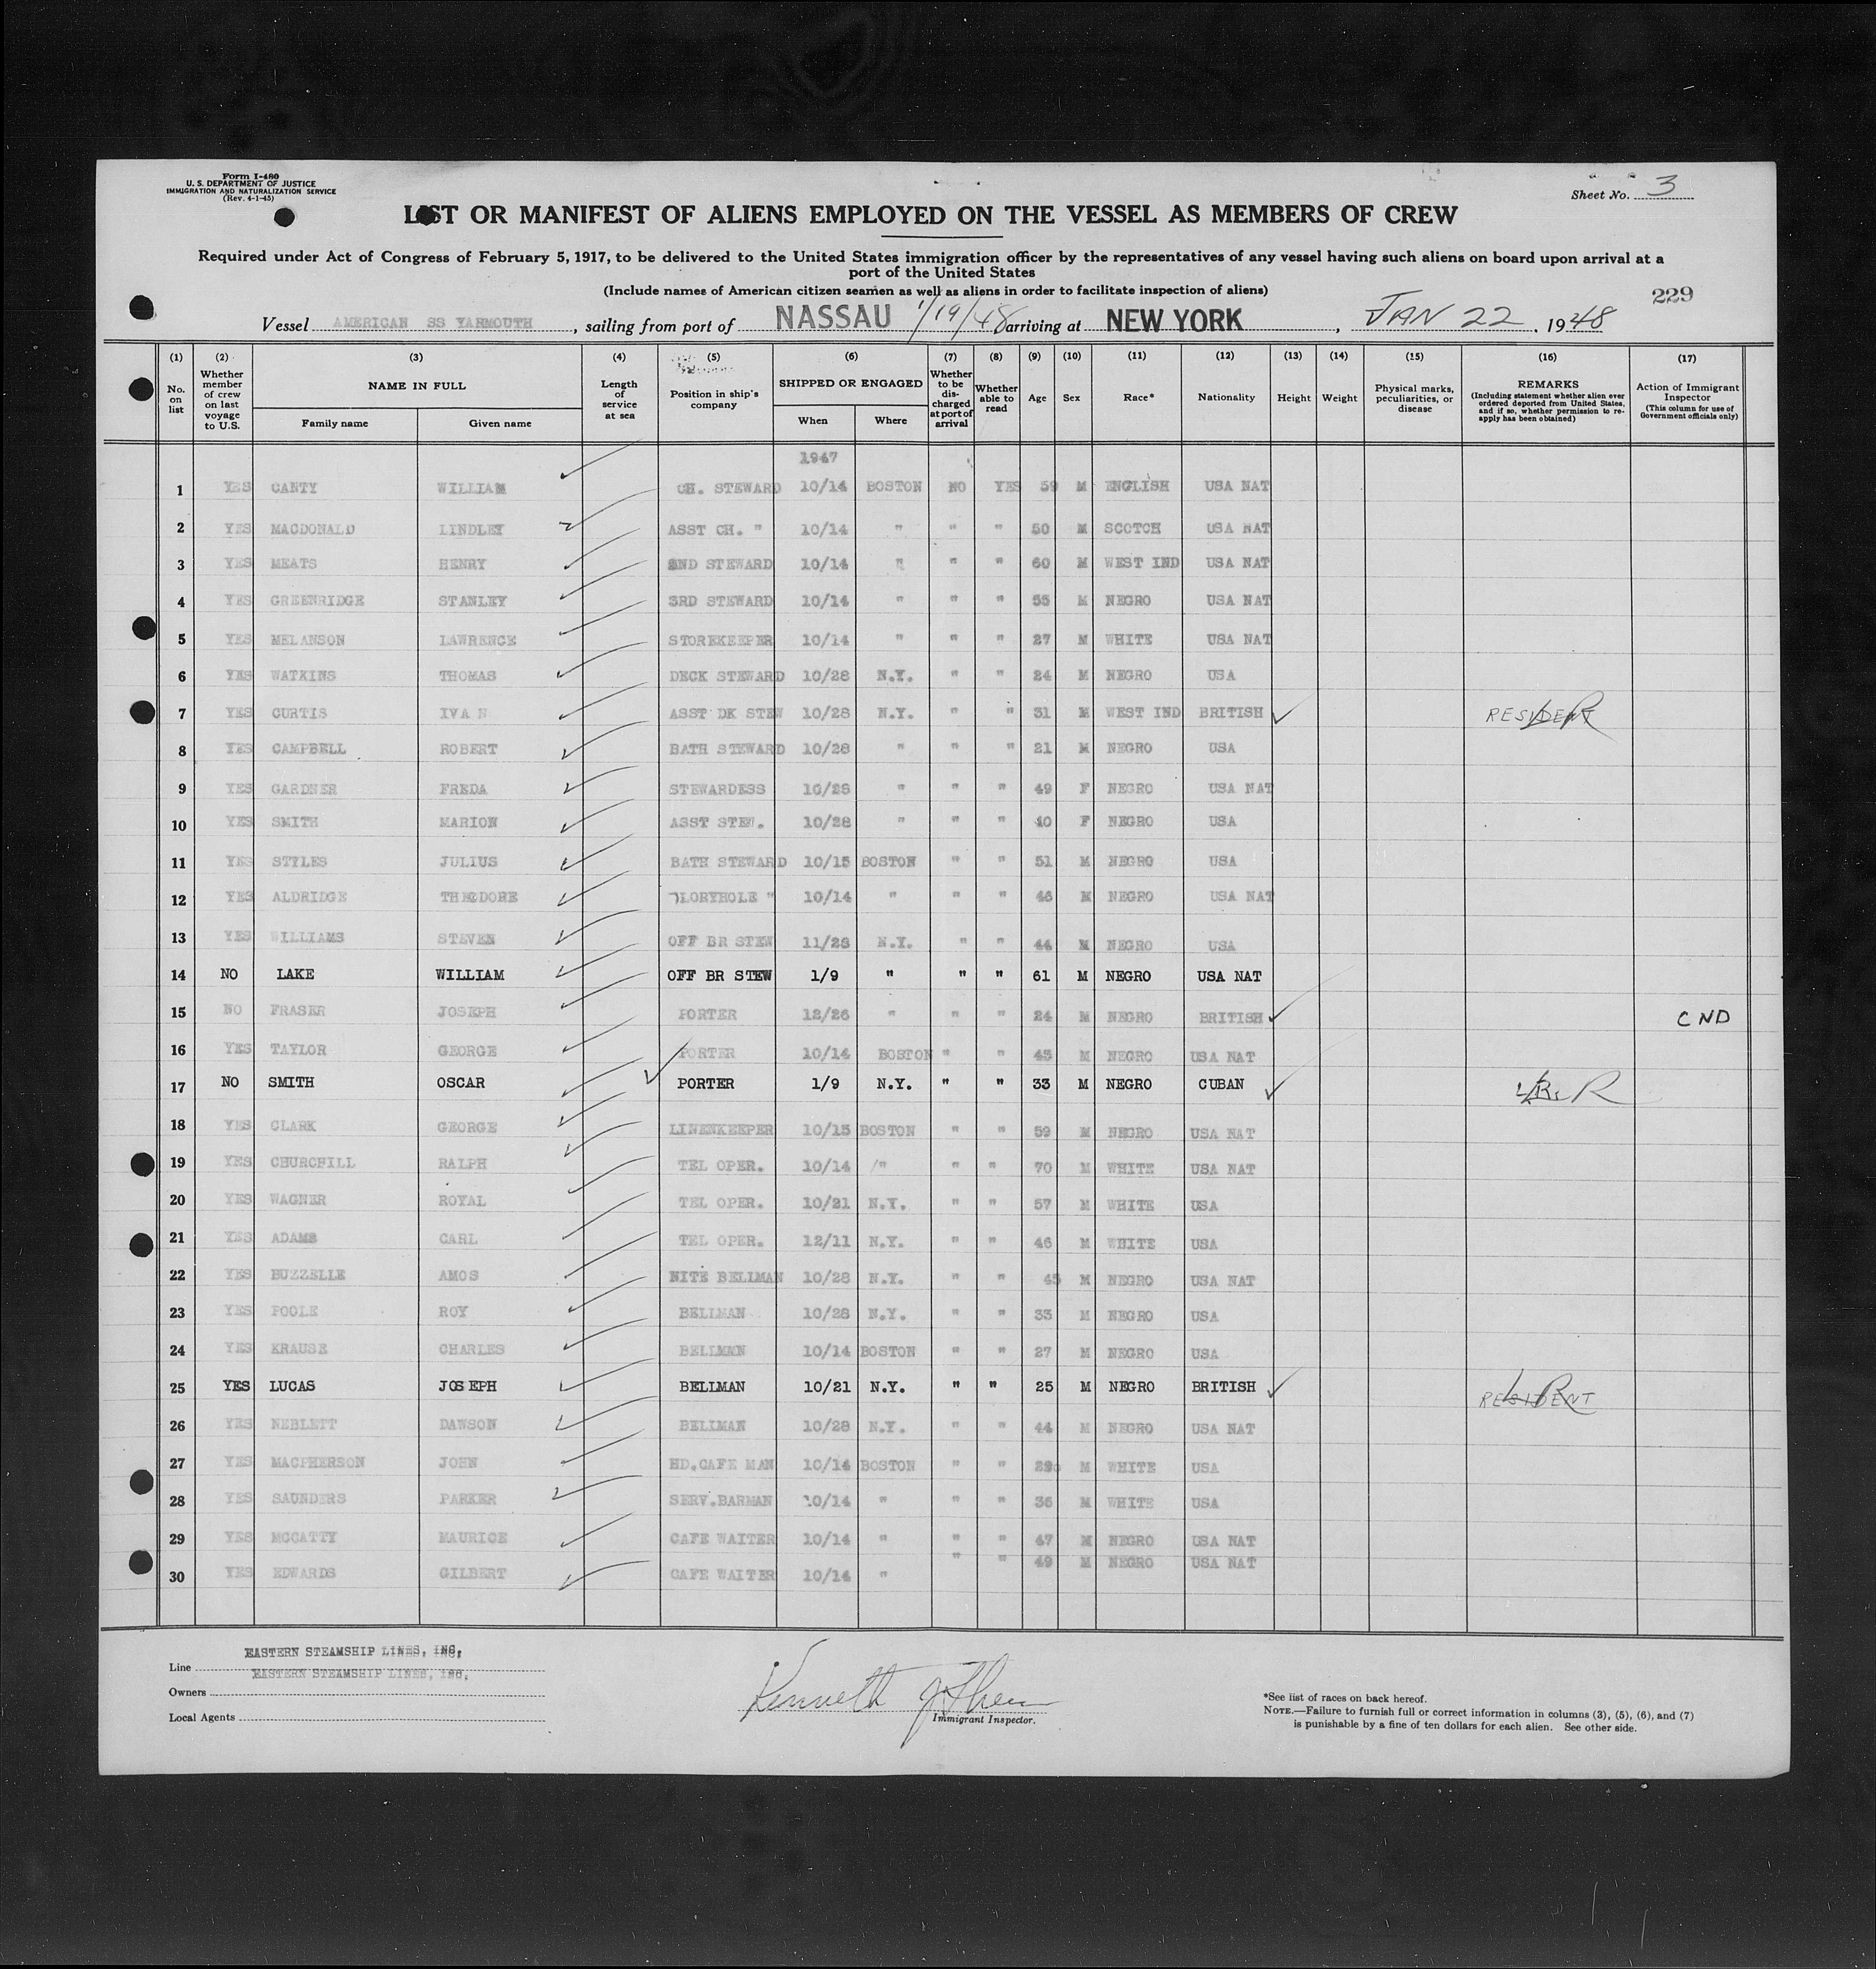 Form I-480
U. S. DEPARTMENT OF JUSTICE
IMMIGRATION AND NATURALIZATION SERVICE
(Rev. 4-1-45)
Sheet No. 3
LIST OR MANIFEST OF ALIENS EMPLOYED ON THE VESSEL AS MEMBERS OF CREW
Required under Act of Congress of February 5, 1917, to be delivered to the United States immigration officer by the representatives of any vessel having such aliens on board upon arrival at a
port of the United States
(Include names of American citizen seamen as well as aliens in order to facilitate inspection of aliens)
229
Vessel AMERICAN SS YARMOUTH, sailing from port of NASSAU 1/19/48 arriving at NEW YORK, JAN 22, 1948
(1) (2) (3) (4) (5) (6) (7) (8) (9) (10) (11) (12) (13) (14) (15) (16) (17)
No. on list
Whether member of crew on last voyage to U.S.
NAME IN FULL
Family name
Given name
Length of service at sea
Position in ship's company
SHIPPED OR ENGAGED
When
Where
Whether to be discharged at port of arrival
Whether able to read
Age
Sex
Race*
Nationality
Height
Weight
Physical marks, peculiarities, or disease
REMARKS
(Including statement whether alien ever ordered deported from United States, and if so, whether permission to reapply has been obtained)
Action of Immigrant Inspector
(This column for use of Government officials only)
1947
1 YES CANTY WILLIAM CH. STEWARD 10/14 BOSTON NO YES 59 M ENGLISH USA NAT
2 YES MACDONALD LINDLEY ASST CH. " 10/14 " " " 50 M SCOTCH USA NAT
3 YES MEATS HENRY 2ND STEWARD 10/14 " " " 60 M WEST IND USA NAT
4 YES GREENRIDGE STANLEY 3RD STEWARD 10/14 " " " 55 M NEGRO USA NAT
5 YES MELANSON LAWRENCE STOREKEEPER 10/14 " " " 27 M WHITE USA NAT
6 YES WATKINS THOMAS DECK STEWARD 10/28 N.Y. " " 24 M NEGRO USA
7 YES CURTIS IVAN ASST DK STEW 10/28 N.Y. " " 31 M WEST IND BRITISH RESIDENT LR
8 YES CAMPBELL ROBERT BATH STEWARD 10/28 " " " 21 M NEGRO USA
9 YES GARDNER FREDA STEWARDESS 10/28 " " " 49 F NEGRO USA NAT
10 YES SMITH MARION ASST STEW. 10/28 " " " 40 F NEGRO USA
11 YES STYLES JULIUS BATH STEWARD 10/15 BOSTON " " 51 M NEGRO USA
12 YES ALDRIDGE THEODORE GLORYHOLE " 10/14 " " " 46 M NEGRO USA NAT
13 YES WILLIAMS STEVEN OFF BR STEW 11/28 N.Y. " " 44 M NEGRO USA
14 NO LAKE WILLIAM OFF BR STEW 1/9 " " " 61 M NEGRO USA NAT
15 NO FRASER JOSEPH PORTER 12/26 " " " 24 M NEGRO BRITISH CND
16 YES TAYLOR GEORGE PORTER 10/14 BOSTON " " 43 M NEGRO USA NAT
17 NO SMITH OSCAR PORTER 1/9 N.Y. " " 33 M NEGRO CUBAN R
18 YES CLARK GEORGE LINENKEEPER 10/15 BOSTON " " 59 M NEGRO USA NAT
19 YES CHURCHILL RALPH TEL OPER. 10/14 " " " 70 M WHITE USA NAT
20 YES WAGNER ROYAL TEL OPER. 10/21 N.Y. " " 57 M WHITE USA
21 YES ADAMS CARL TEL OPER. 12/11 N.Y. " " 46 M WHITE USA
22 YES BUZZELLE AMOS NITE BELLMAN 10/28 N.Y. " " 45 M NEGRO USA NAT
23 YES POOLE ROY BELLMAN 10/28 N.Y. " " 33 M NEGRO USA
24 YES KRAUSE CHARLES BELLMAN 10/14 BOSTON " " 27 M NEGRO USA
25 YES LUCAS JOSEPH BELLMAN 10/21 N.Y. " " 25 M NEGRO BRITISH RESIDENT LR
26 YES NEBLETT DAWSON BELLMAN 10/28 N.Y. " " 44 M NEGRO USA NAT
27 YES MACPHERSON JOHN HD.CAFE MAN 10/14 BOSTON " " M WHITE USA
28 YES SAUNDERS PARKER SERV.BARMAN 10/14 " " " 36 M WHITE USA
29 YES MCCATTY MAURICE CAFE WAITER 10/14 " " " 47 M NEGRO USA NAT
30 YES EDWARDS GILBERT CAFE WAITER 10/14 " " " 49 M NEGRO USA NAT
EASTERN STEAMSHIP LINES, INC.
Line
EASTERN STEAMSHIP LINES, INC.
Owners
Local Agents
Kenneth J
Immigrant Inspector.
*See list of races on back hereof.
NOTE.—Failure to furnish full or correct information in columns (3), (5), (6), and (7)
is punishable by a fine of ten dollars for each alien. See other side.